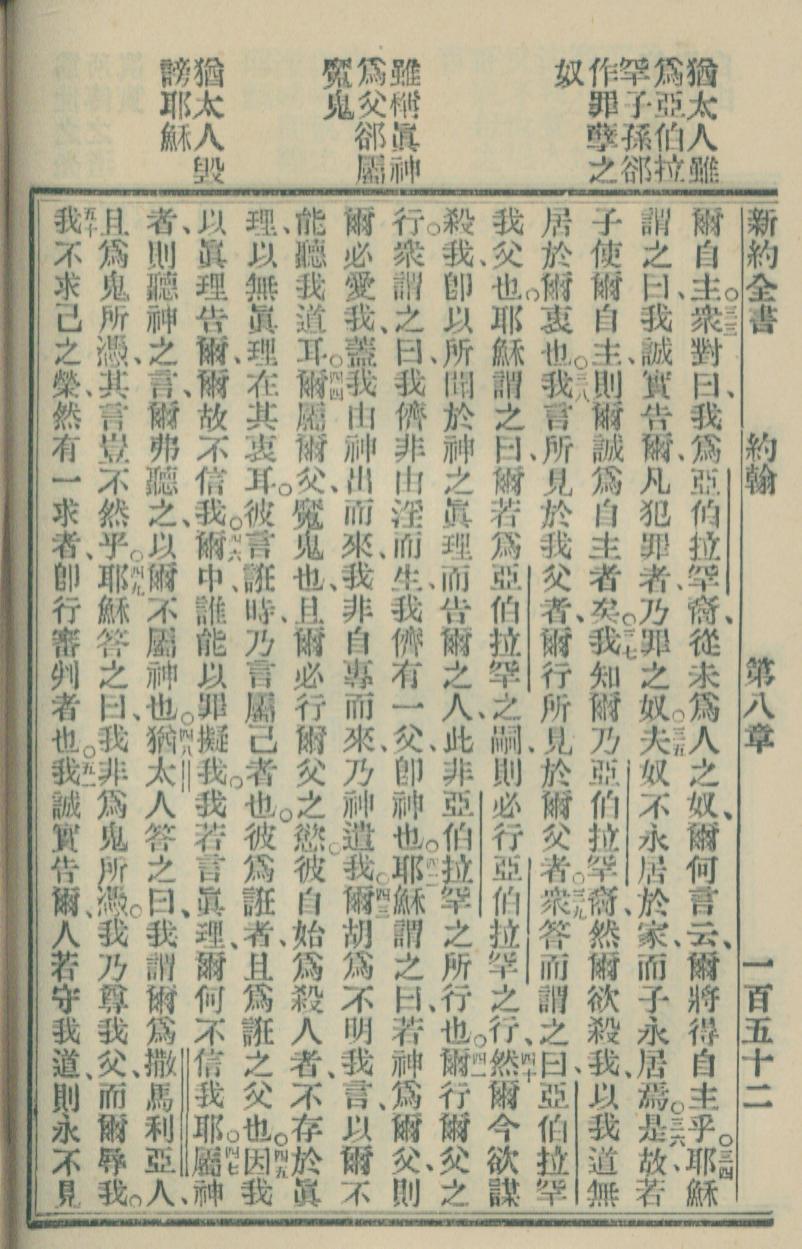 猶太人雖
爲亞伯拉
罕子孫郤
作罪孽之
奴
雖稱眞神
爲父郤屬
魔鬼
猶太人毀
謗耶穌
新約全書　約翰　第八章　一百五十二
爾自主。三三衆對曰、我爲亞伯拉罕裔、從未爲人之奴、爾何言云、爾將得自主乎。三四耶穌
謂之曰、我誠實告爾、凡犯罪者、乃罪之奴。三五夫奴不永居於家、而子永居焉。三六是故若
子使爾自主、則爾誠爲自主者矣。三七我知爾乃亞伯拉罕裔、然爾欲殺我、以我道無
居於爾衷也。三八我言所見於我父者、爾行所見於爾父者。三九衆答而謂之曰、亞伯拉罕
我父也。耶穌謂之曰、爾若爲亞伯拉罕之嗣、則必行亞伯拉罕之行、四十然爾今欲謀
殺我、卽以所聞於神之眞理而告爾之人、此非亞伯拉罕之所行也。四一爾行爾父之
行。衆謂之曰、我儕非由淫而生、我儕有一父、卽神也。四二耶穌謂之曰、若神爲爾父、則
爾必愛我、蓋我由神出而來、我非自專而來、乃神遣我。四三爾胡爲不明我言、以爾不
能聽我道耳。四四爾屬爾父、魔鬼也、且爾必行爾父之慾。彼自始爲殺人者、不存於眞
理、以無眞理在其衷耳。彼言誑時、乃言屬己者也。彼爲誑者、且爲誑之父也。四五因我
以眞理告爾、爾故不信我。四六爾中、誰能以罪擬我。我若言眞理、爾何不信我耶。四七屬神
者、則聽神之言、爾弗聽之、以爾不屬神也。四八猶太人答之曰、我謂爾爲撒馬利亞人、
且爲鬼所憑、其言豈不然乎。四九耶穌答之曰、我非爲鬼所憑。我乃尊我父、而爾辱我。
五十我不求己之榮、然有一求者、卽行審判者也。五一我誠實告爾、人若守我道、則永不見